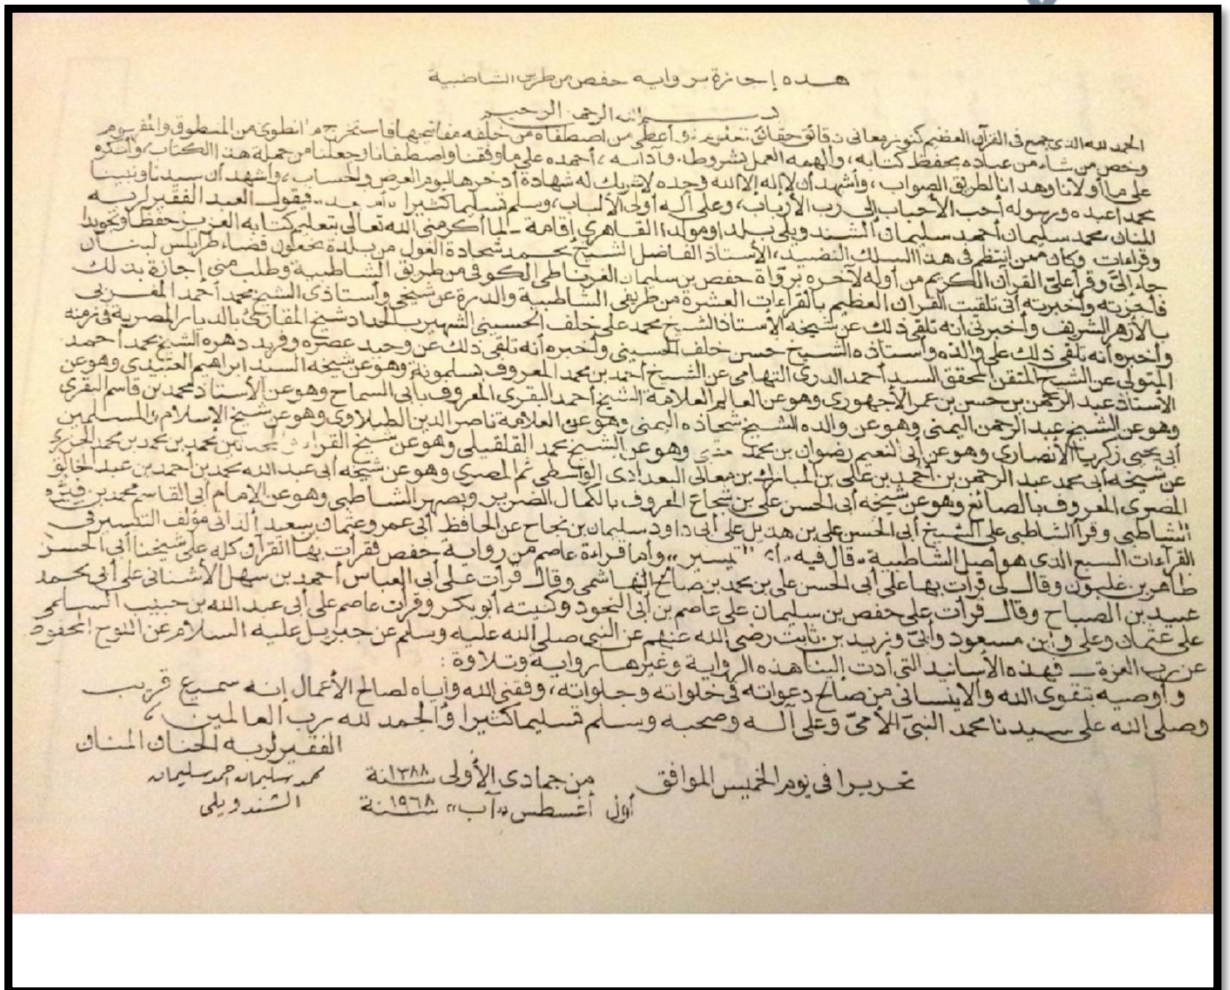 هذه إجازة برواية حفص من طريق الشاطبية
بسم الله الرحمن الرحيم
الحمد لله الذي جمع في القرآن العظيم كنوز معاني دقائق حقائق وأعطى من اصطفاه من خلقه مفاتيحها فاستخرج ما انطوى من المنطوق والمفهوم
وخص من شاء من عباده بحفظ كتابه، وألهمه العمل بشروطه وآدابه، أحمده على ما وفقنا واصطفانا وجعلنا من حملة هذا الكتاب، وأشكره
على ما أولانا وهدانا لطريق الصواب، وأشهد أن لا إله إلا الله وحده لا شريك له شهادة أدخرها ليوم العرض والحساب، وأشهد أن سيدنا ونبينا
محمدا عبده ورسوله أحب الأحباب إلى رب الأرباب، وعلى آله أولى الألباب، وسلم تسليما كثيرا فيقول العبد الفقير لربه
المنان محمد سليمان أحمد سليمان الشندويلى بلدا ومولدا القاهري إقامة - لما أكرمني الله تعالى بتعليم كتابه العزيز حفظا وتجويدا
وقراءات وكان ممن انتظم في هذا السلك النضيد، الأستاذ الفاضل الشيخ محمد شحادة الغول من بلدة بخعون قضاء طرابلس لبنان
جاء إلىّ وقرأ علىّ القرآن الكريم من أوله لآخره برواية حفص بن سليمان الكوفى من طريق الشاطبية وطلب منى إجازة بذلك
فأجزته وأخبرته أنى تلقيت القرآن العظيم بالقراءات العشرة من طريقى الشاطبية والدرة عن شيخى وأستاذى الشيخ محمد أحمد المغربى
بالأزهر الشريف وأخبرنى أنه تلقى ذلك عن شيخه الأستاذ الشيخ محمد على خلف الحسينى الشهير بالحداد شيخ المقارئ بالديار المصرية فى زمنه
وأخبره أنه تلقى ذلك على والده وأستاذه الشيخ حسن خلف الحسينى وأخبره أنه تلقى ذلك عن وحيد عصره وفريد دهره الشيخ محمد أحمد
المتولى عن الشيخ المتقن المحقق السيد أحمد الدرى التهامى عن الشيخ أحمد بن محمد المعروف بسلمونة وهو عن شيخه السيد ابراهيم العبيدى وهو عن
الأستاذ عبد الرحمن بن حسن بن عمر الأجهورى وهو عن العالم العلامة الشيخ أحمد البقرى المعروف بأبى السماح وهو عن الأستاذ محمد بن قاسم البقرى
وهو عن الشيخ عبد الرحمن اليمنى وهو عن والده الشيخ شحاده اليمنى وهو عن العلامة ناصر الدين الطبلاوى وهو عن شيخ الإسلام والمسلمين
أبى يحيى زكريا الأنصارى وهو عن أبى النعيم رضوان بن محمد وهو عن الشيخ محمد القلقيلى وهو عن شيخ القراء محمد بن محمد بن محمد بن محمد الجزرى
عن شيخه أبى محمد عبد الرحمن بن أحمد بن على بن المبارك بن معالى البغدادى الواسطى ثم المصرى وهو عن شيخه أبى عبد الله محمد بن أحمد بن عبد الخالق
المصرى المعروف بالصائغ وهو عن شيخه أبى الحسن على بن شجاع المعروف بالكمال الضرير وبصهر الشاطبى وهو عن الامام أبى القاسم محمد بن فيره
الشاطبى وقرأ الشاطبى على الشيخ أبى الحسن على بن هذيل على أبى داود سليمان بن نجاح عن الحافظ أبى عمرو عثمان بن سعيد الدانى مؤلف التيسير فى
القراءات السبع الذى هو أصل الشاطبية، قال فيه أى "التيسير" وأما قراءة عاصم من رواية حفص فقرأت بها القرآن كله على شيخنا أبى الحسن
طاهر بن غلبون وقال لى قرأت بها على أبى الحسن على بن محمد بن صالح الهاشمى وقال قرأت على أبى العباس أحمد بن سهل الأشنانى على أبى محمد
عبيد بن الصباح وقال قرأت على حفص بن سليمان على عاصم بن أبى النجود وكنيته أبو بكر وقرأت عاصم على أبى عبد الله بن حبيب السلمى
على عثمان وعلى وابن مسعود وأبىّ وزيد بن ثابت رضى الله عنهم عن النبى صلى الله عليه وسلم عن جبريل عليه السلام عن اللوح المحفوظ
عن رب العزة - فهذه الأسانيد التى أدت إلينا هذه الرواية وغيرها رواية وتلاوة:
وأوصيه بتقوى الله وألا ينسانى من صالح دعواته فى خلواته وجلواته، وفقنى الله وإياه لصالح الأعمال إنه سميع قريب
وصلى الله على سيدنا محمد النبىّ الأمىّ وعلى آله وصحبه وسلم تسليما كثيرا والحمد لله رب العالمين،
الفقير لربه الحنان المنان
محمد سليمان احمد سليمان
الشندويلى
تحريرا فى يوم الخميس الموافق من جمادى الأولى سنة ١٣٨٨
أول أغسطس "آب" سنة ١٩٦٨